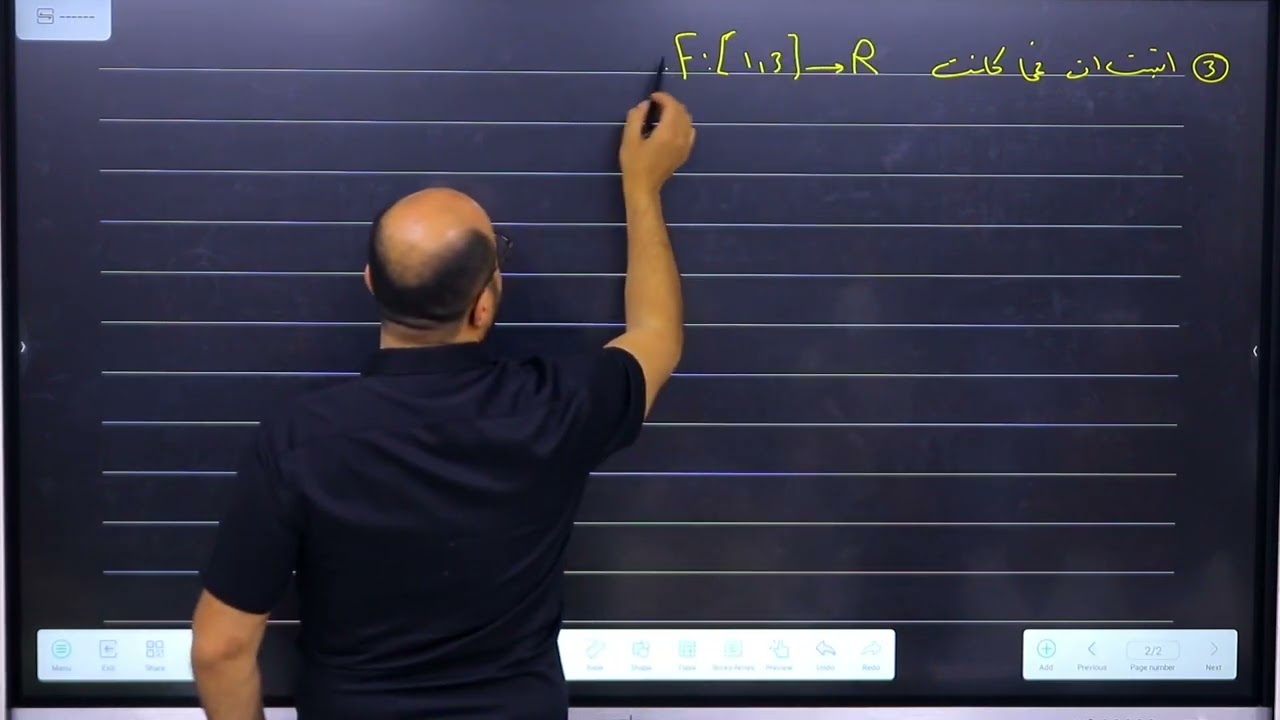 ------
③ اثبت ان فيما كانت F:[1,3]→R
Menu
Exit
Share
Shape
Table
Preview
Undo
Redo
Add
Previous
2/2
Page number
Next